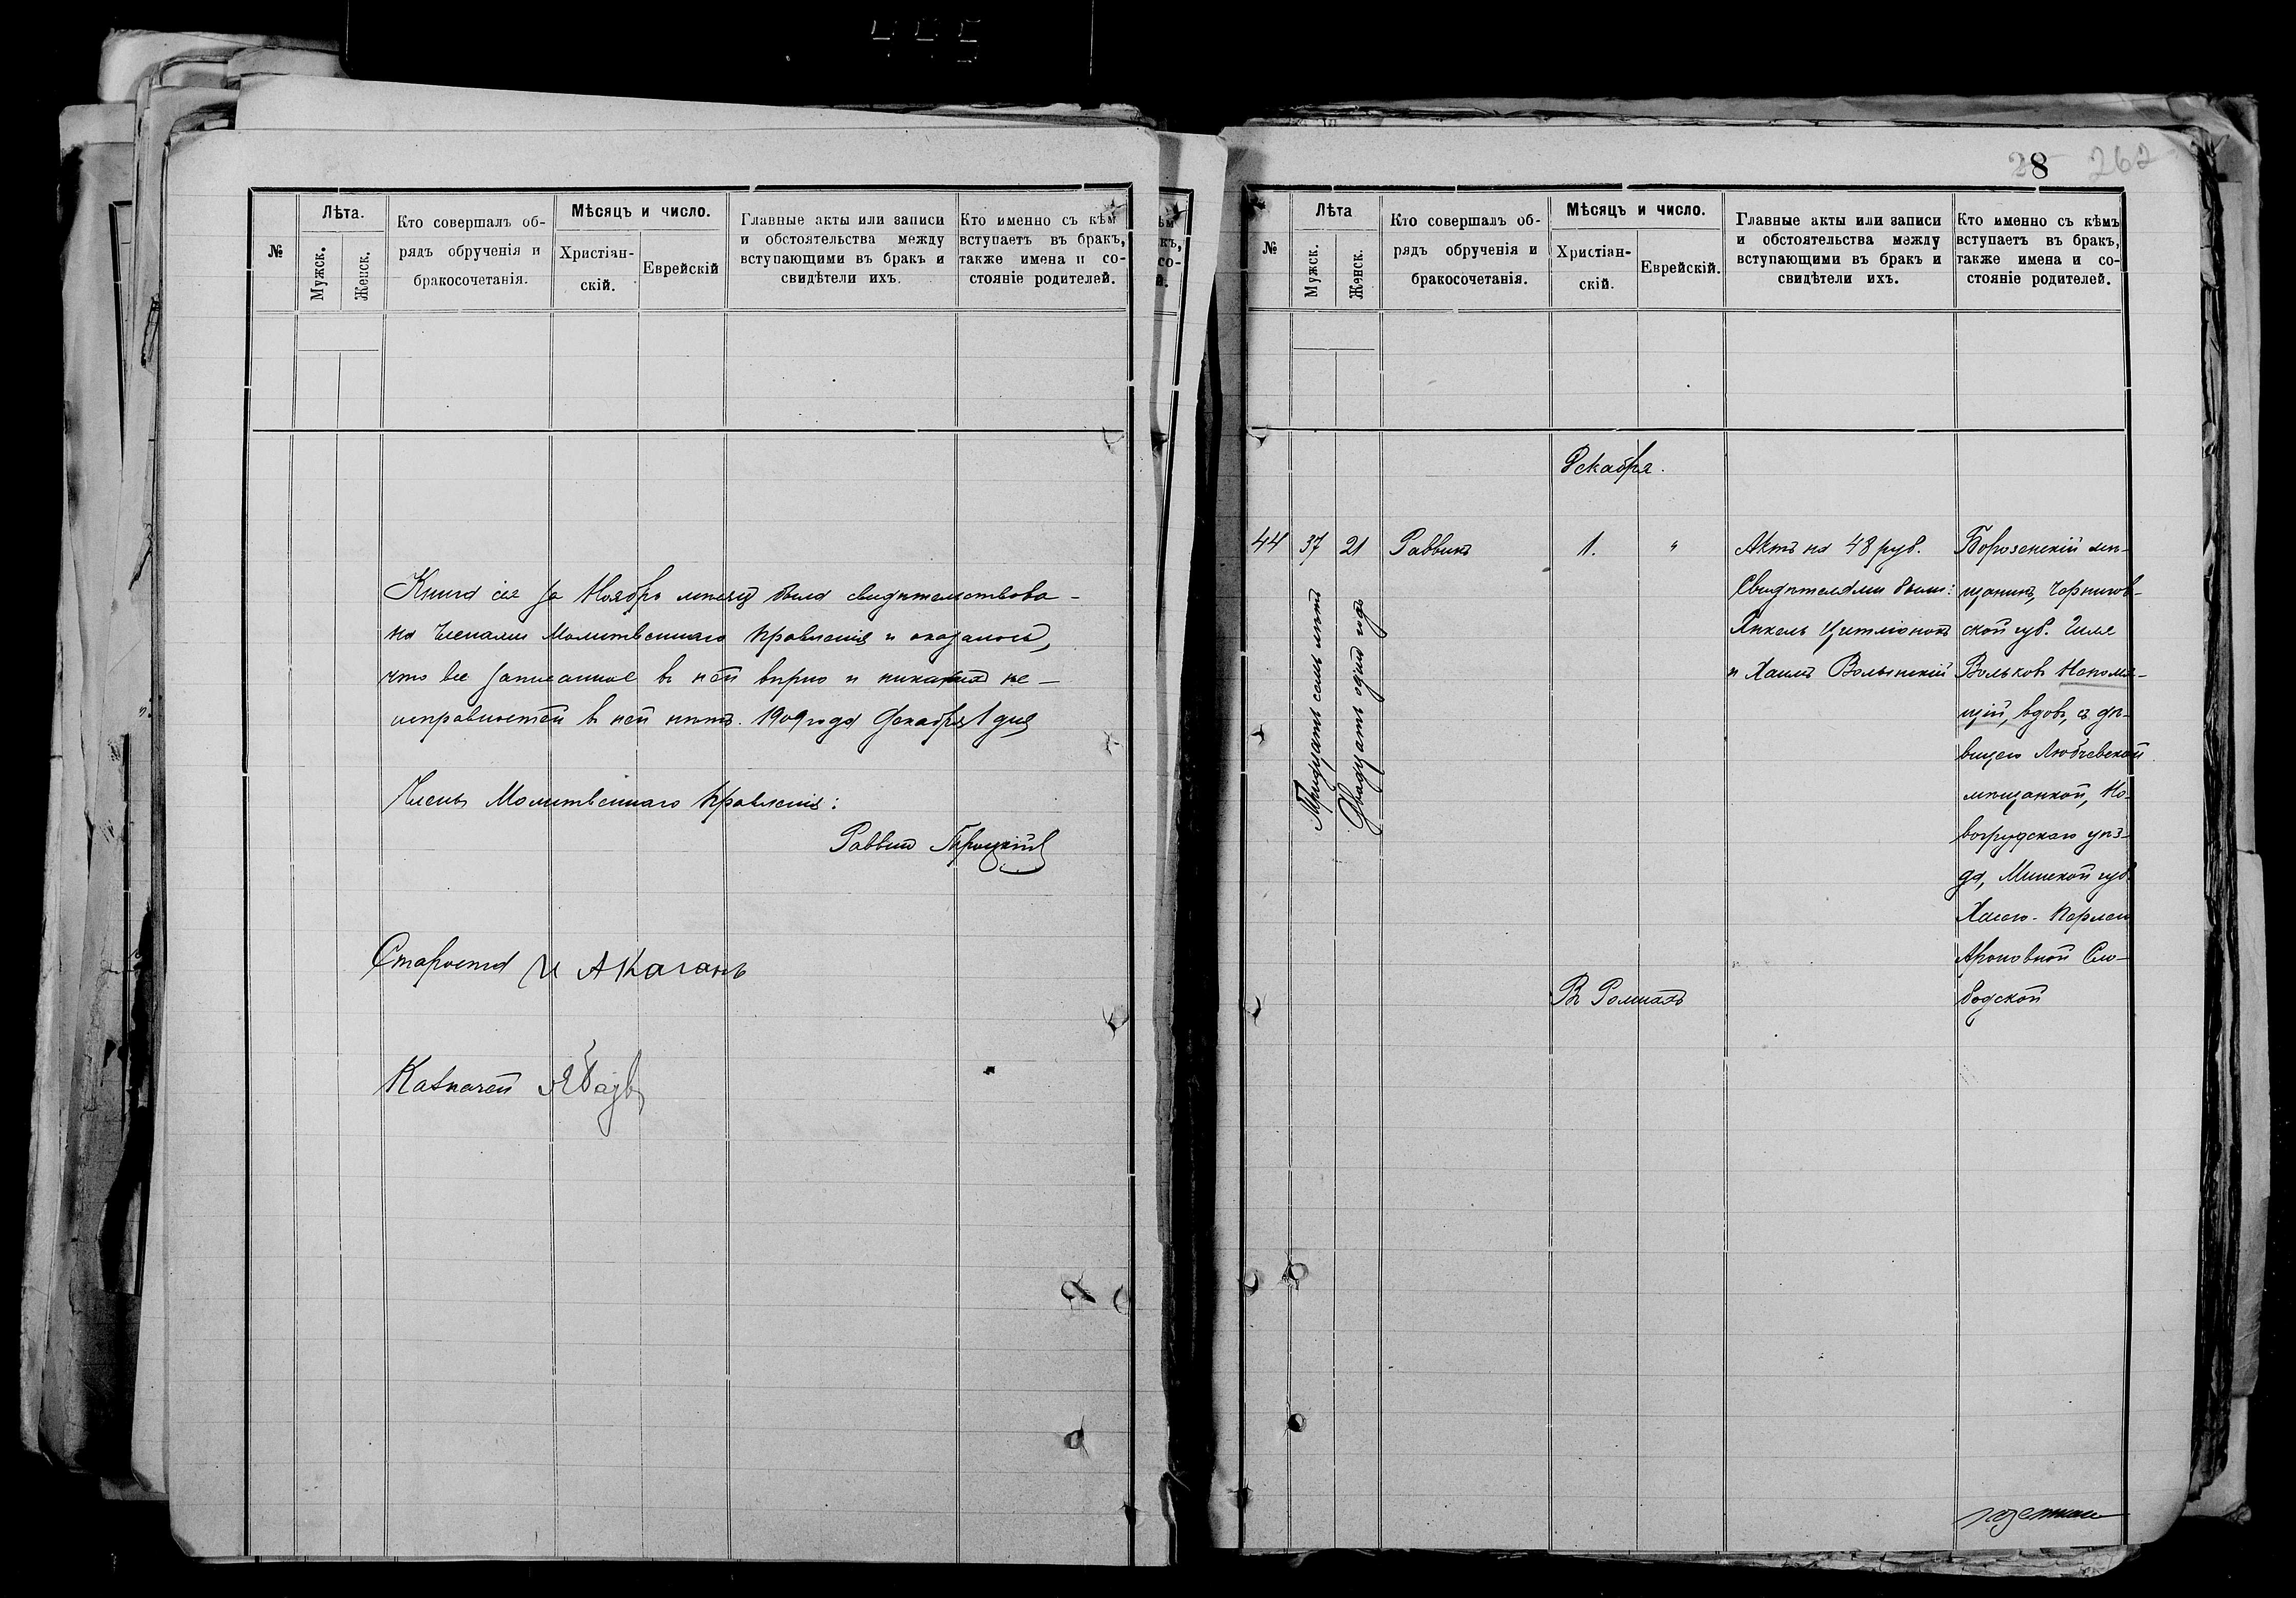 №
Лѣта.
Мужск.
Женск.
Кто совершалъ об-
рядъ обрученія и
бракосочетанія.
Мѣсяцъ и число.
Христіан-
скій.
Еврейскій
Главные акты или записи
и обстоятельства между
вступающими въ бракъ и
свидѣтели ихъ.
Кто именно съ кѣмъ
вступаетъ въ бракъ,
также имена и со-
стояніе родителей.
Книга сія за Ноябрь мѣсяцъ была свидѣтельствова-
на Членами Молитвеннаго Правленія и оказалось,
что все записанное въ ней вѣрно и никакихъ не-
исправностей въ ней нѣтъ. 1909 года Декабря 1 дня
Члены Молитвеннаго Правленія:
Раввинъ Троцкій
Староста И А Каганъ
Казначей
28 262
№
Лѣта
Мужск.
Женск.
Кто совершалъ об-
рядъ обрученія и
бракосочетанія.
Мѣсяцъ и число.
Христіан-
скій.
Еврейскій.
Главные акты или записи
и обстоятельства между
вступающими въ бракъ и
свидѣтели ихъ.
Кто именно съ кѣмъ
вступаетъ въ бракъ,
также имена и со-
стояніе родителей.
Декабря.
44 37 21 Раввинъ 1. "
Тридцать семь лѣтъ
Двадцать одинъ годъ
Актъ на 48 руб.
Свидѣтелями были:
Янкель Цитліонокъ
и Хаимъ Волынскій
Борзенскій мѣ-
щанинъ, Чернигов-
ской губ. Гилья
Вольковъ Непомня-
щій, вдовъ, съ дѣ-
вицею Любчевской
мѣщанкой, Но-
вогрудскаго уѣз-
да, Минской губ.
Хаею-Перлею
Ароновной Сло-
бодской
Въ Ромнахъ